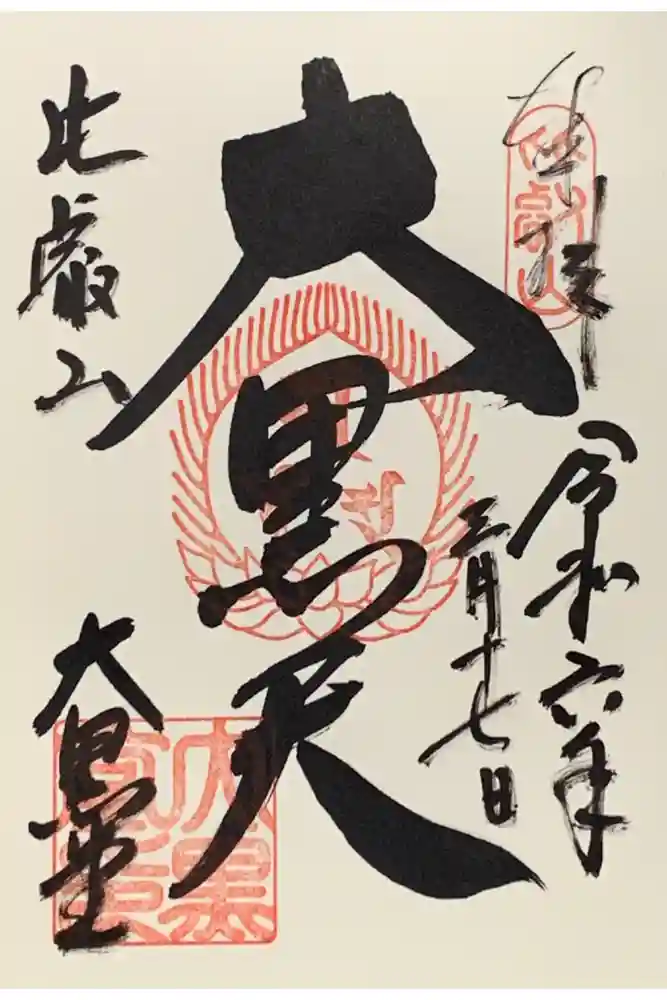 奉拝
令和六年
三月十七日
大黒天
比叡山
大黒堂
比叡山